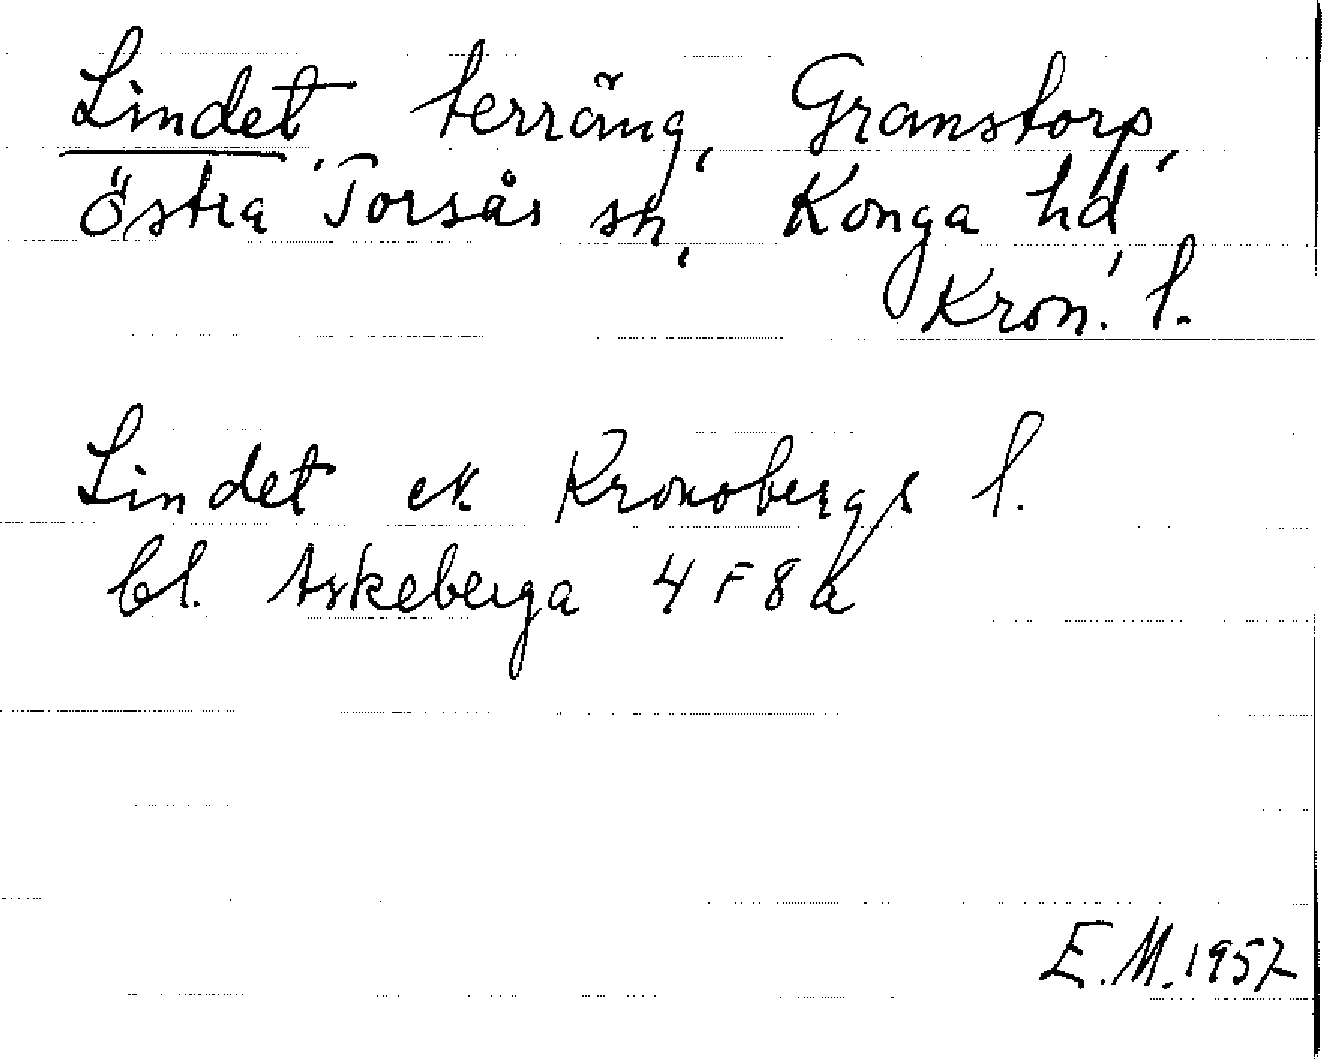 Lindet, terräng, Granstorp,
Östra Torsås sn, Konga hd,
Kron. l.
Lindet ek Kronobergs l.
bl. Askeberga 4 F 8 a
E.M. 1957